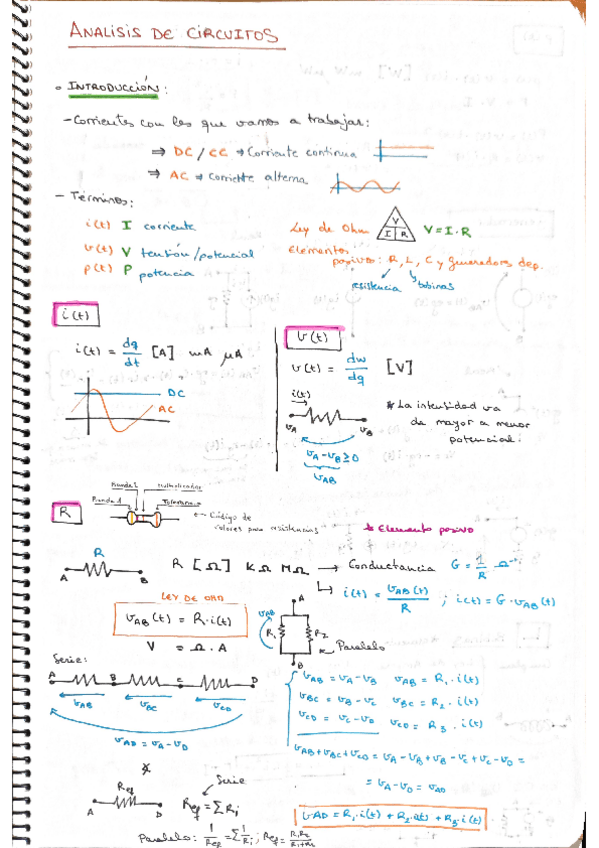 ANALISIS DE CIRCUITOS
• INTRODUCCIÓN:
- Corrientes con las que vamos a trabajar:
⇒ DC / CC → Corriente continua
⇒ AC → Corriente alterna
- Términos:
i(t) I corriente
v(t) V tensión/potencial
p(t) P potencia
Ley de Ohm V I R V = I·R
Elementos
pasivos: R, L, C y generadores dep.
resistencia bobinas
i(t)
i(t) = dq/dt [A] mA μA
DC
AC
v(t)
v(t) = dw/dq [V]
i(t)
vA vB
vA - vB ≥ 0
vAB
* La intensidad va
de mayor a menor
potencial.
R
Banda 2 Multiplicador
Banda 1 Tolerancia
← Código de
colores para resistencias
* Elemento pasivo
R
A B
R [Ω] KΩ MΩ → Conductancia G = 1/R Ω⁻¹
i(t) = vAB(t)/R ; i(t) = G·vAB(t)
LEY DE OHM
vAB(t) = R·i(t)
V = Ω · A
A
vAB R1 R2
Paralelo
B
Serie:
A B C D
vAB vBC vCD
vAD = vA - vD
vAB = vA - vB vAB = R1·i(t)
vBC = vB - vC vBC = R2·i(t)
vCD = vC - vD vCD = R3·i(t)
vAB + vBC + vCD = vA - vB + vB - vC + vC - vD =
= vA - vD = vAD
Req
A D
Serie
Req = ΣRi
vAD = R1·i(t) + R2·i(t) + R3·i(t)
Paralelo: 1/Req = Σ 1/Ri ; Req = R1R2/R1+R2